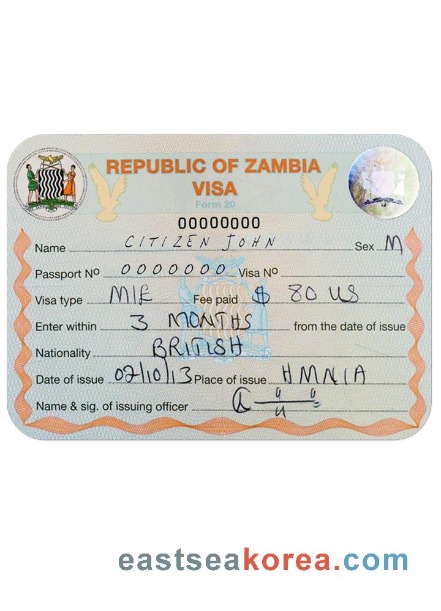 REPUBLIC OF ZAMBIA
VISA
Form 20
00000000
Name CITIZEN JOHN Sex M
Passport Nº 0000000 Visa Nº
Visa type MIE Fee paid $ 80 US
Enter within 3 MONTHS from the date of issue
Nationality BRITISH
Date of issue 02/10/13 Place of issue HMNIA
Name & sig. of issuing officer
eastseakorea.com